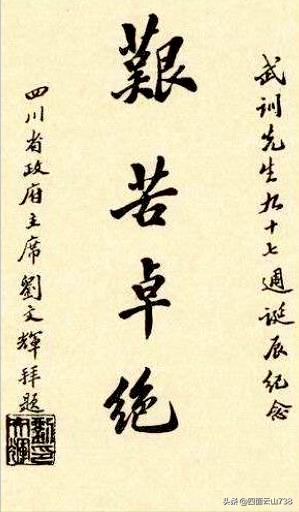 武训先生九十七週誕辰纪念
艱苦卓絶
四川省政府主席劉文輝拜题
头条 @四面云山738